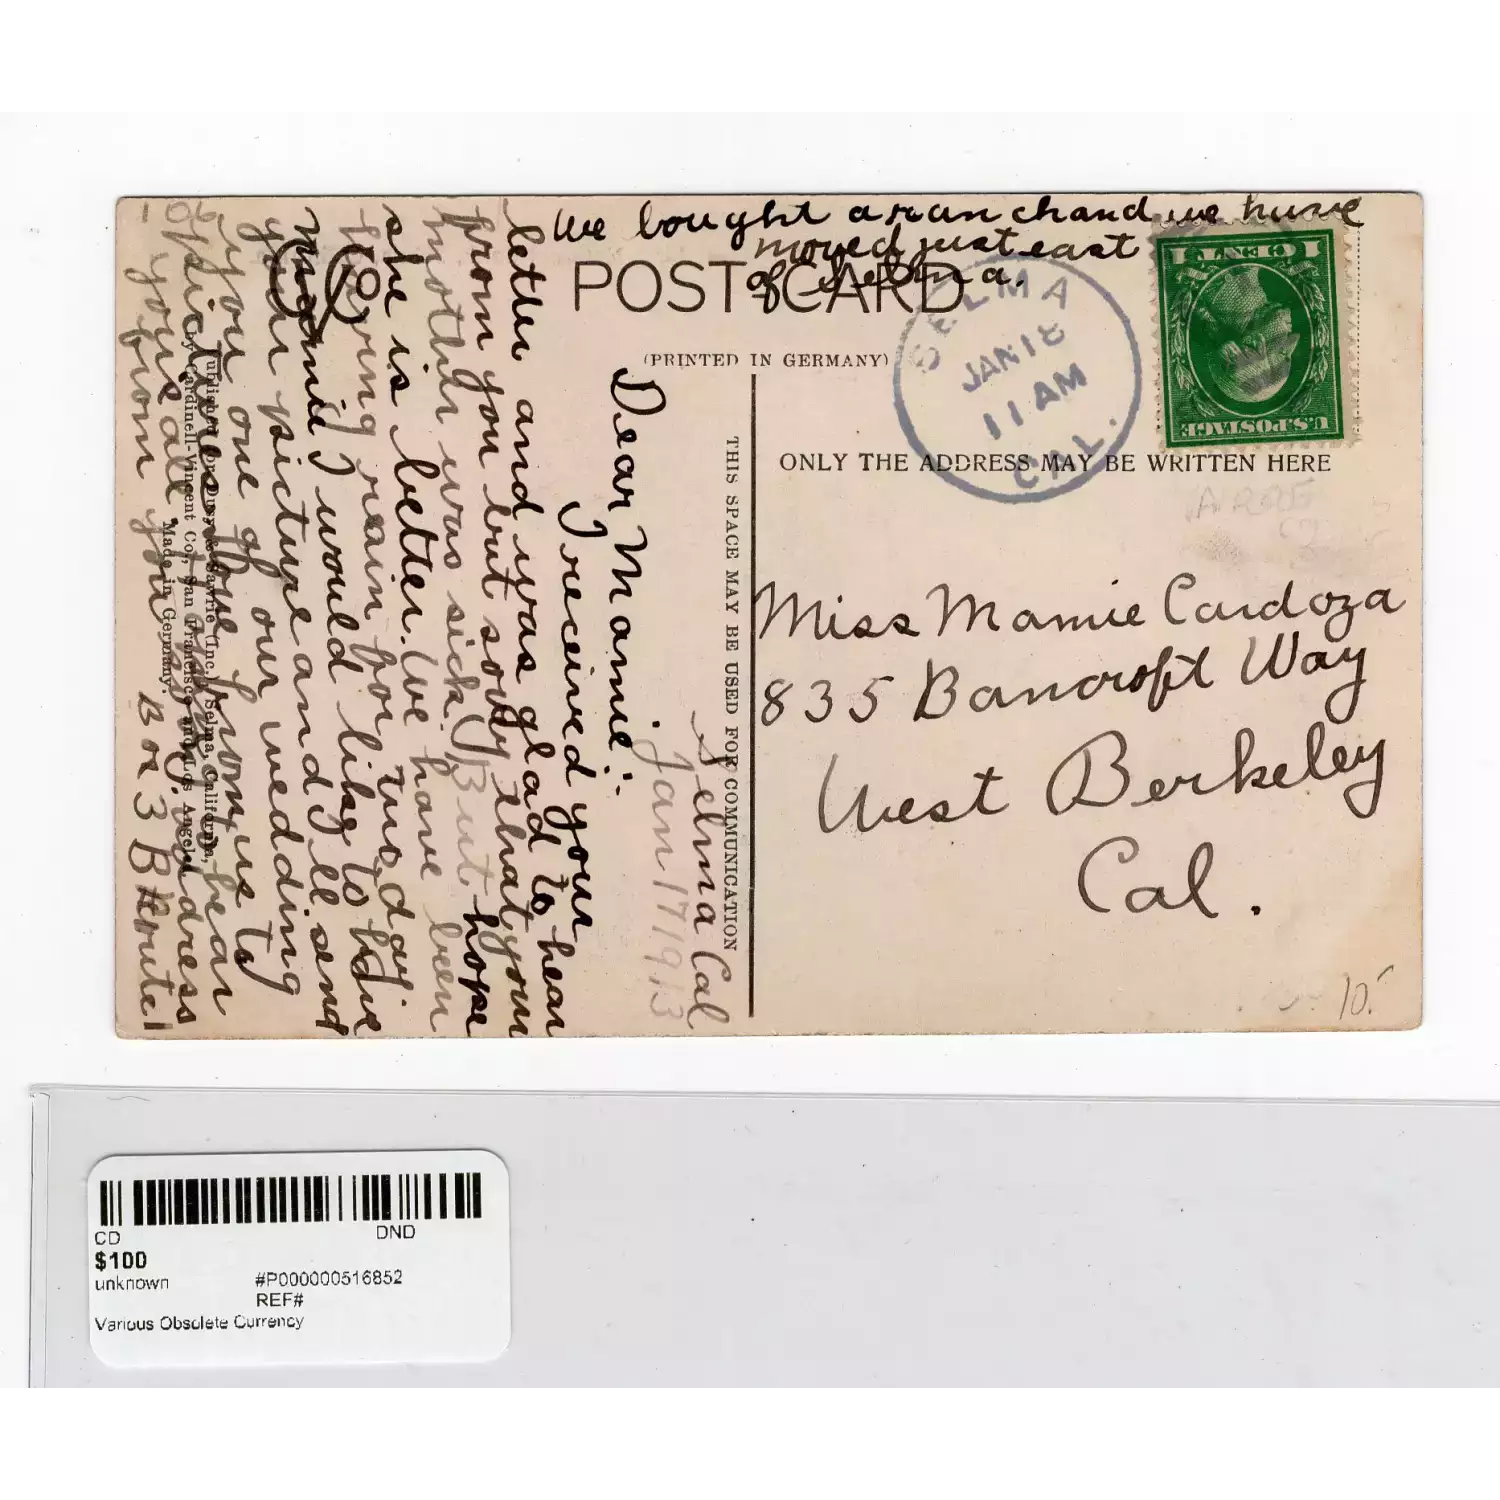 We bought a ranch and we have
moved just east
of Selma.
POST CARD
(PRINTED IN GERMANY)
SELMA
JAN 18
11 AM
CAL.
1 CENT 1
U.S. POSTAGE
THIS SPACE MAY BE USED FOR COMMUNICATION
ONLY THE ADDRESS MAY BE WRITTEN HERE
Selma Cal
Jan 17 1913
Dear Mamie:
I received your
letter and was glad to hear
from you but sorry that your
mother was sick. But hope
she is better. We have been
having rain for two day
Mamie I would like to have
your picture and I'll send
you one of our wedding
pictures
hear
from you
address
Box 3 B Route 1
Published for Dusy & Sawrie (Inc.) Selma, California,
by Cardinell-Vincent Co., San Francisco and Los Angeles
Made in Germany.
Miss Mamie Cardoza
835 Bancroft Way
West Berkeley
Cal.
10.-
CD DND
$100
unknown #P000000516852
REF#
Various Obsolete Currency